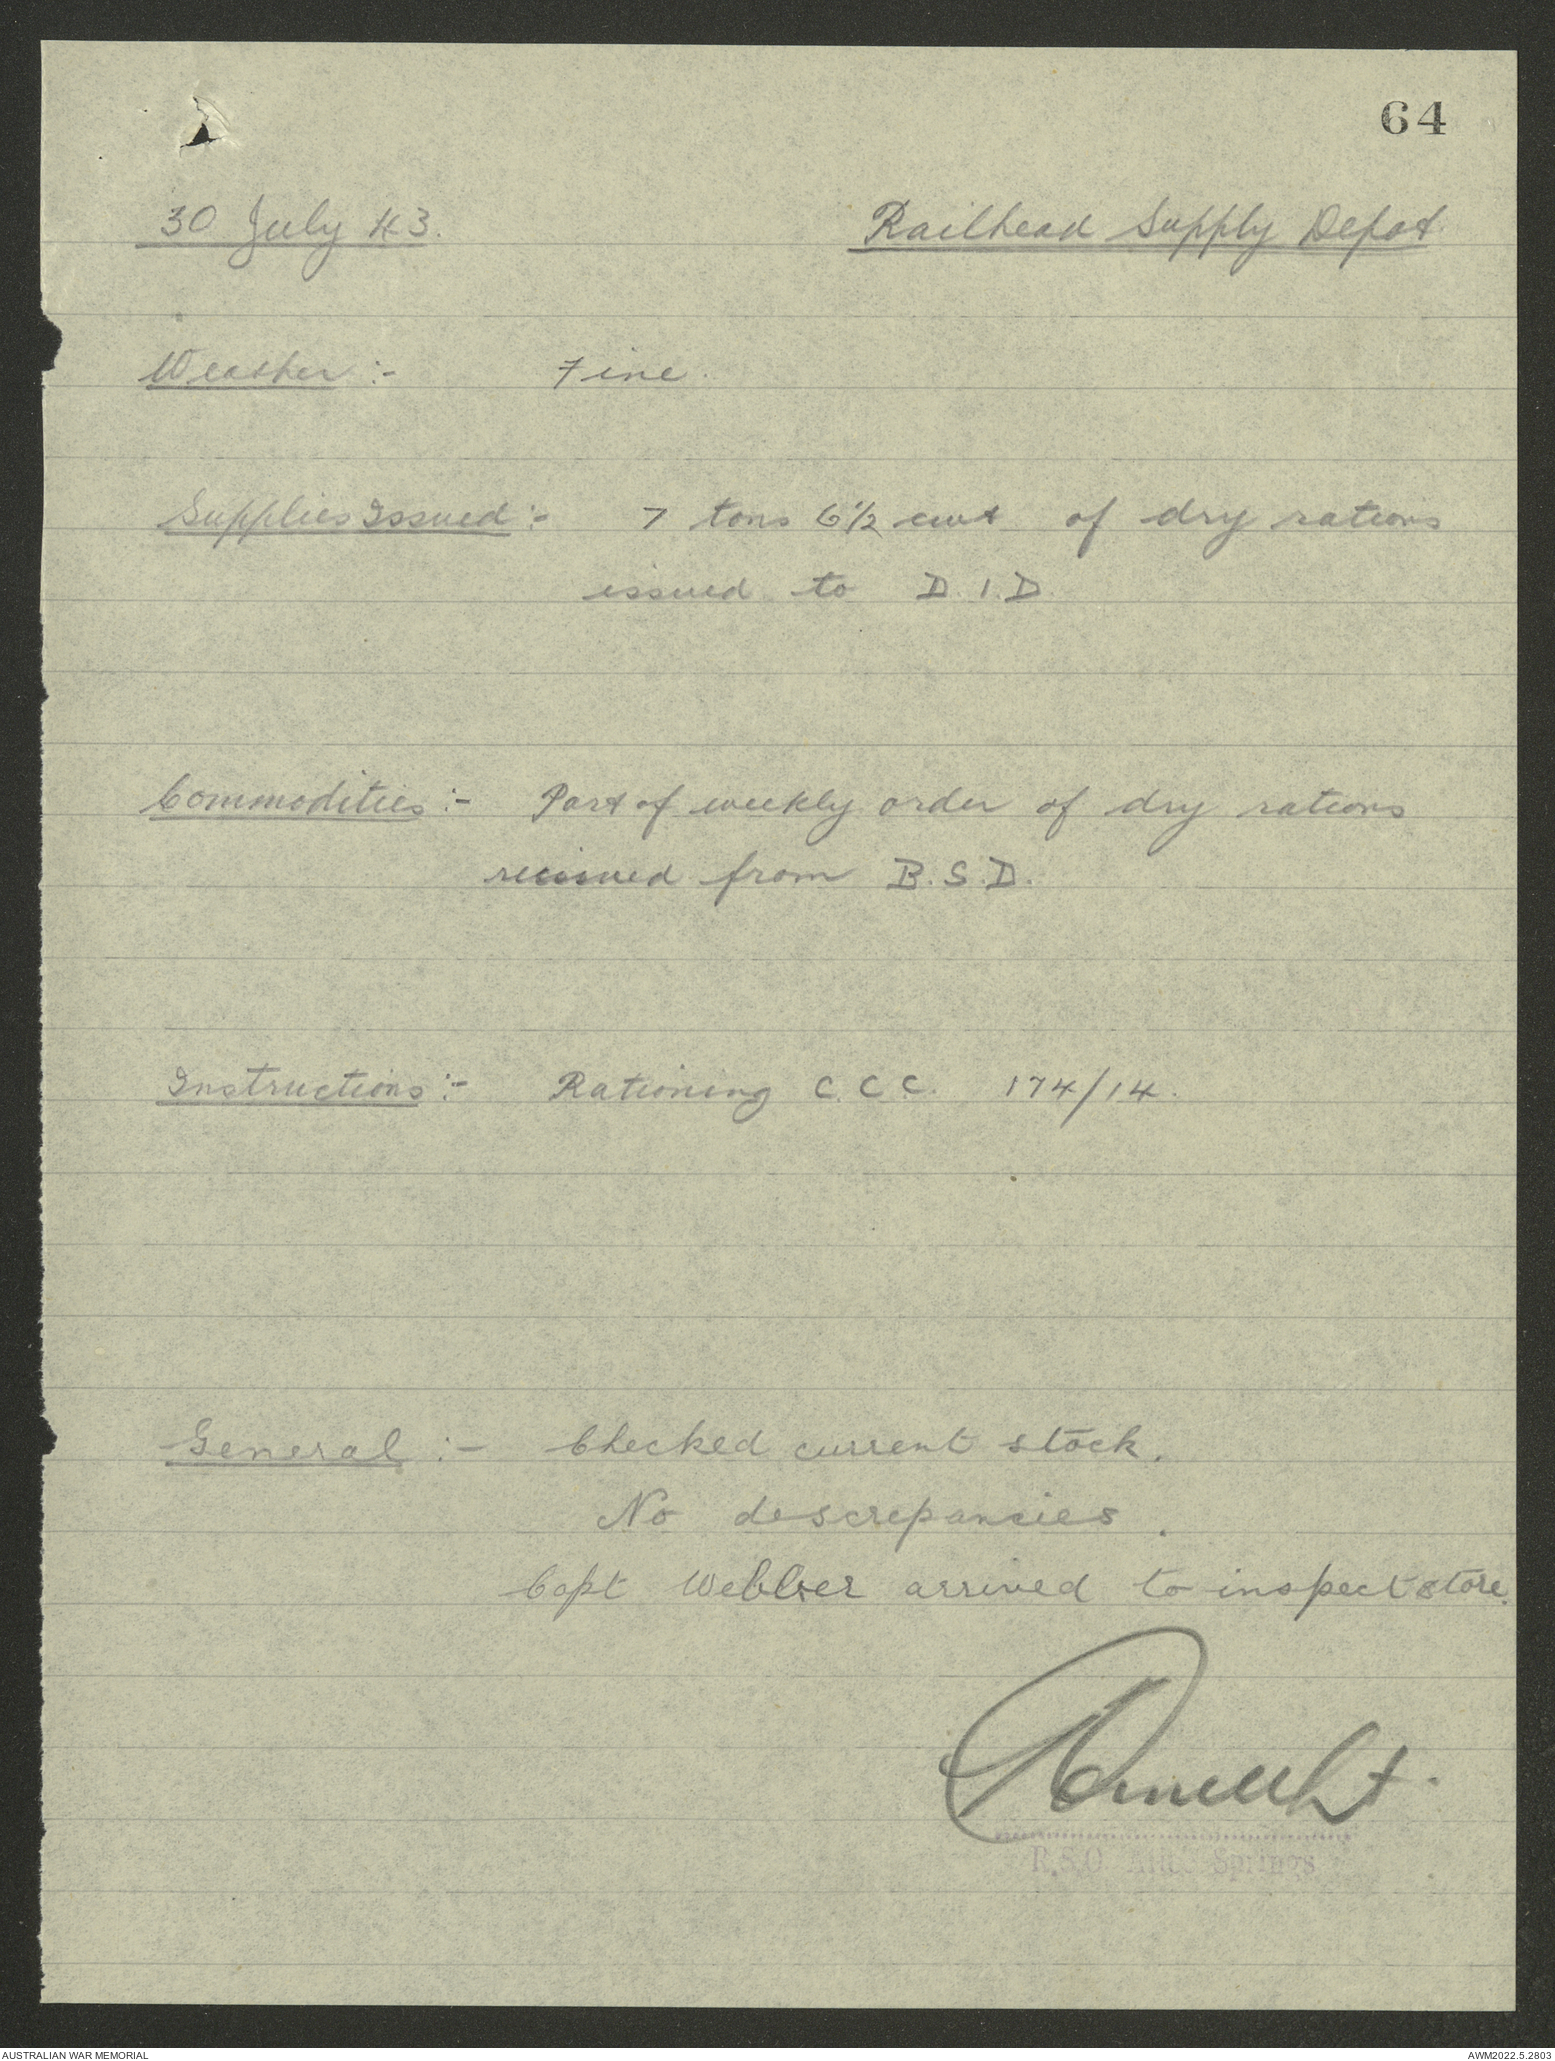 64
30 July 43.
Railhead Supply Depot.
Weather :- Fine.
Supplies Issued :- 7 tons 6½ cwt of dry rations
issued to D.I.D.
Commodities :- Part of weekly order of dry rations
received from B.S.D.
Instructions :- Rationing C.C.C. 174/14.
General :- Checked current stock.
No descrepancies.
Capt Webber arrived to inspect store.
Lt.
R.S.O. Alice Springs
AUSTRALIAN WAR MEMORIAL
AWM2022.5.2803